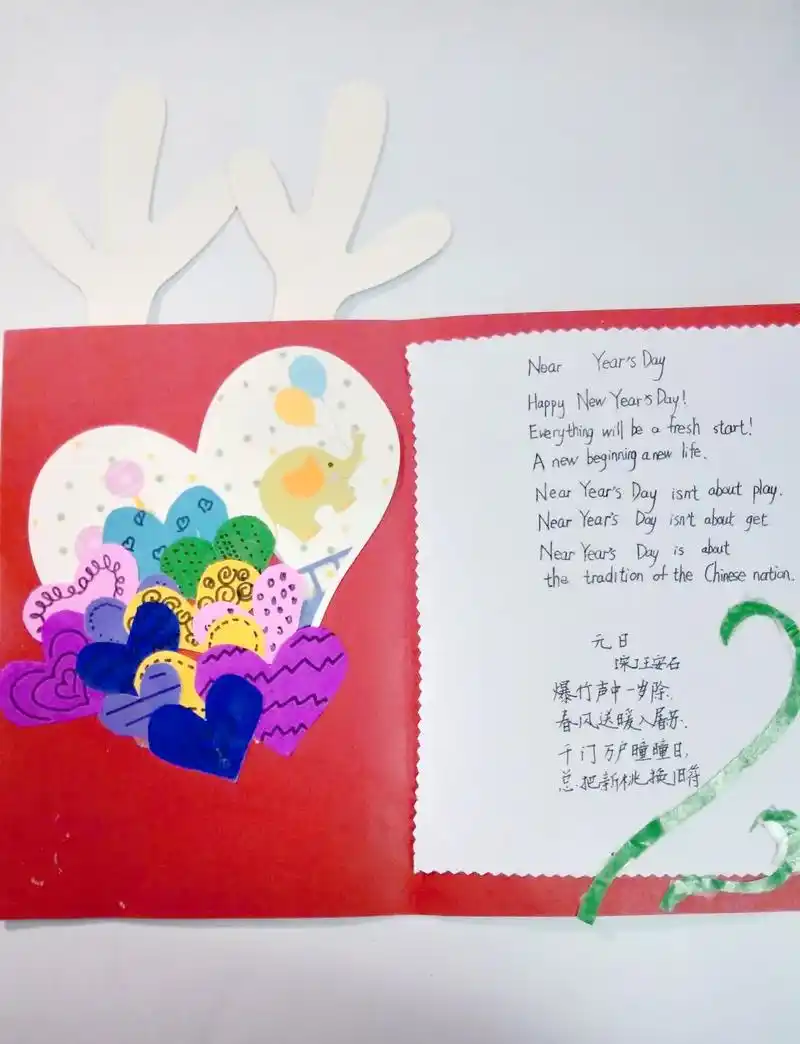 Near Year's Day
Happy New Year's Day!
Everything will be a fresh start!
A new beginning a new life.
Near Year's Day isn't about play.
Near Year's Day isn't about get
Near Year's Day is about
the tradition of the Chinese nation.
元日
[宋]王安石
爆竹声中一岁除,
春风送暖入屠苏.
千门万户瞳瞳日,
总把新桃换旧符